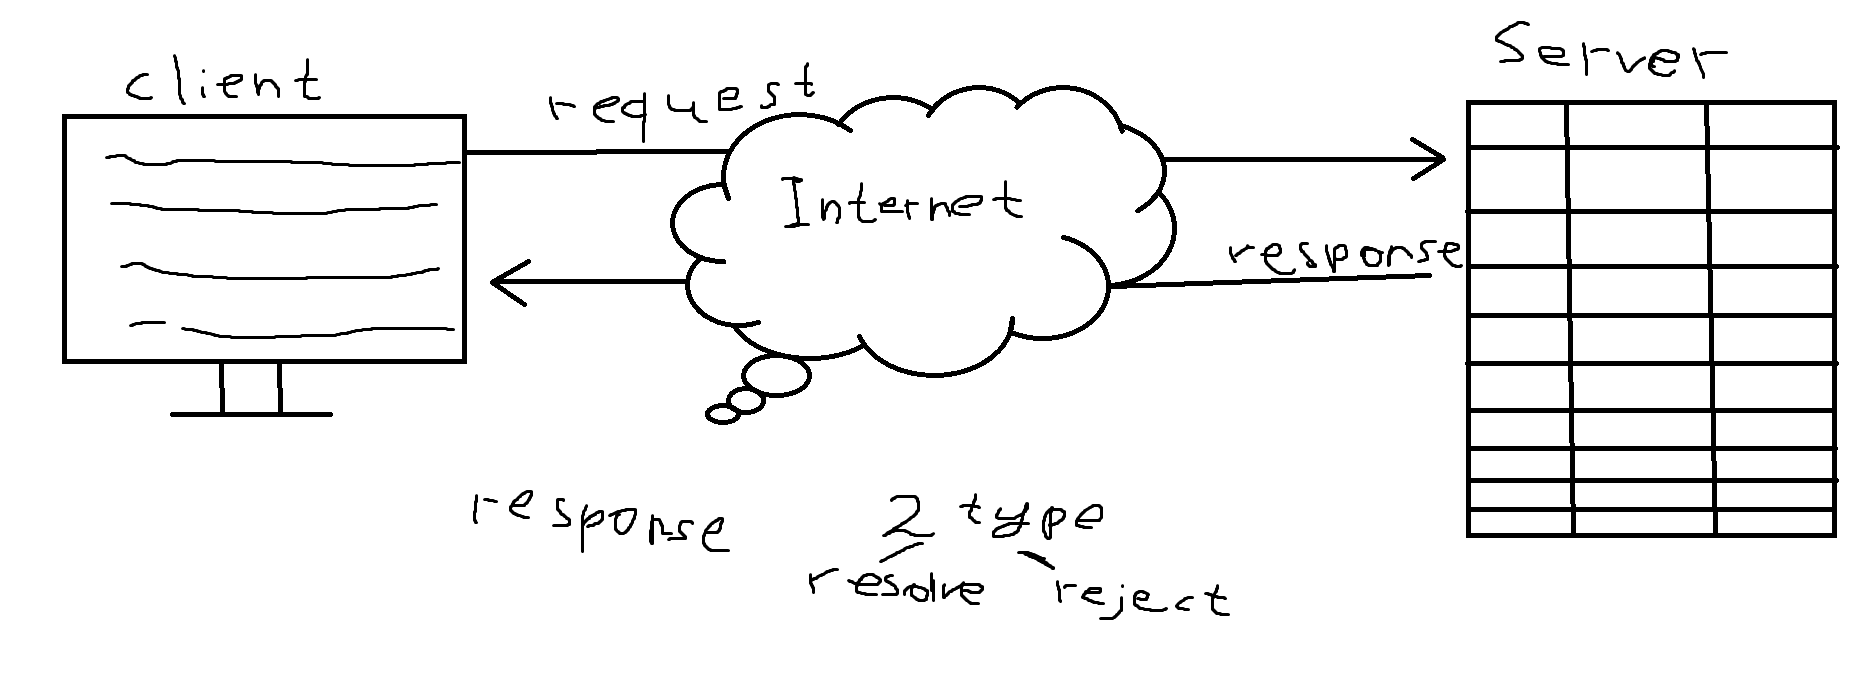 client
request
Server
Internet
response
response 2 type
resolve reject